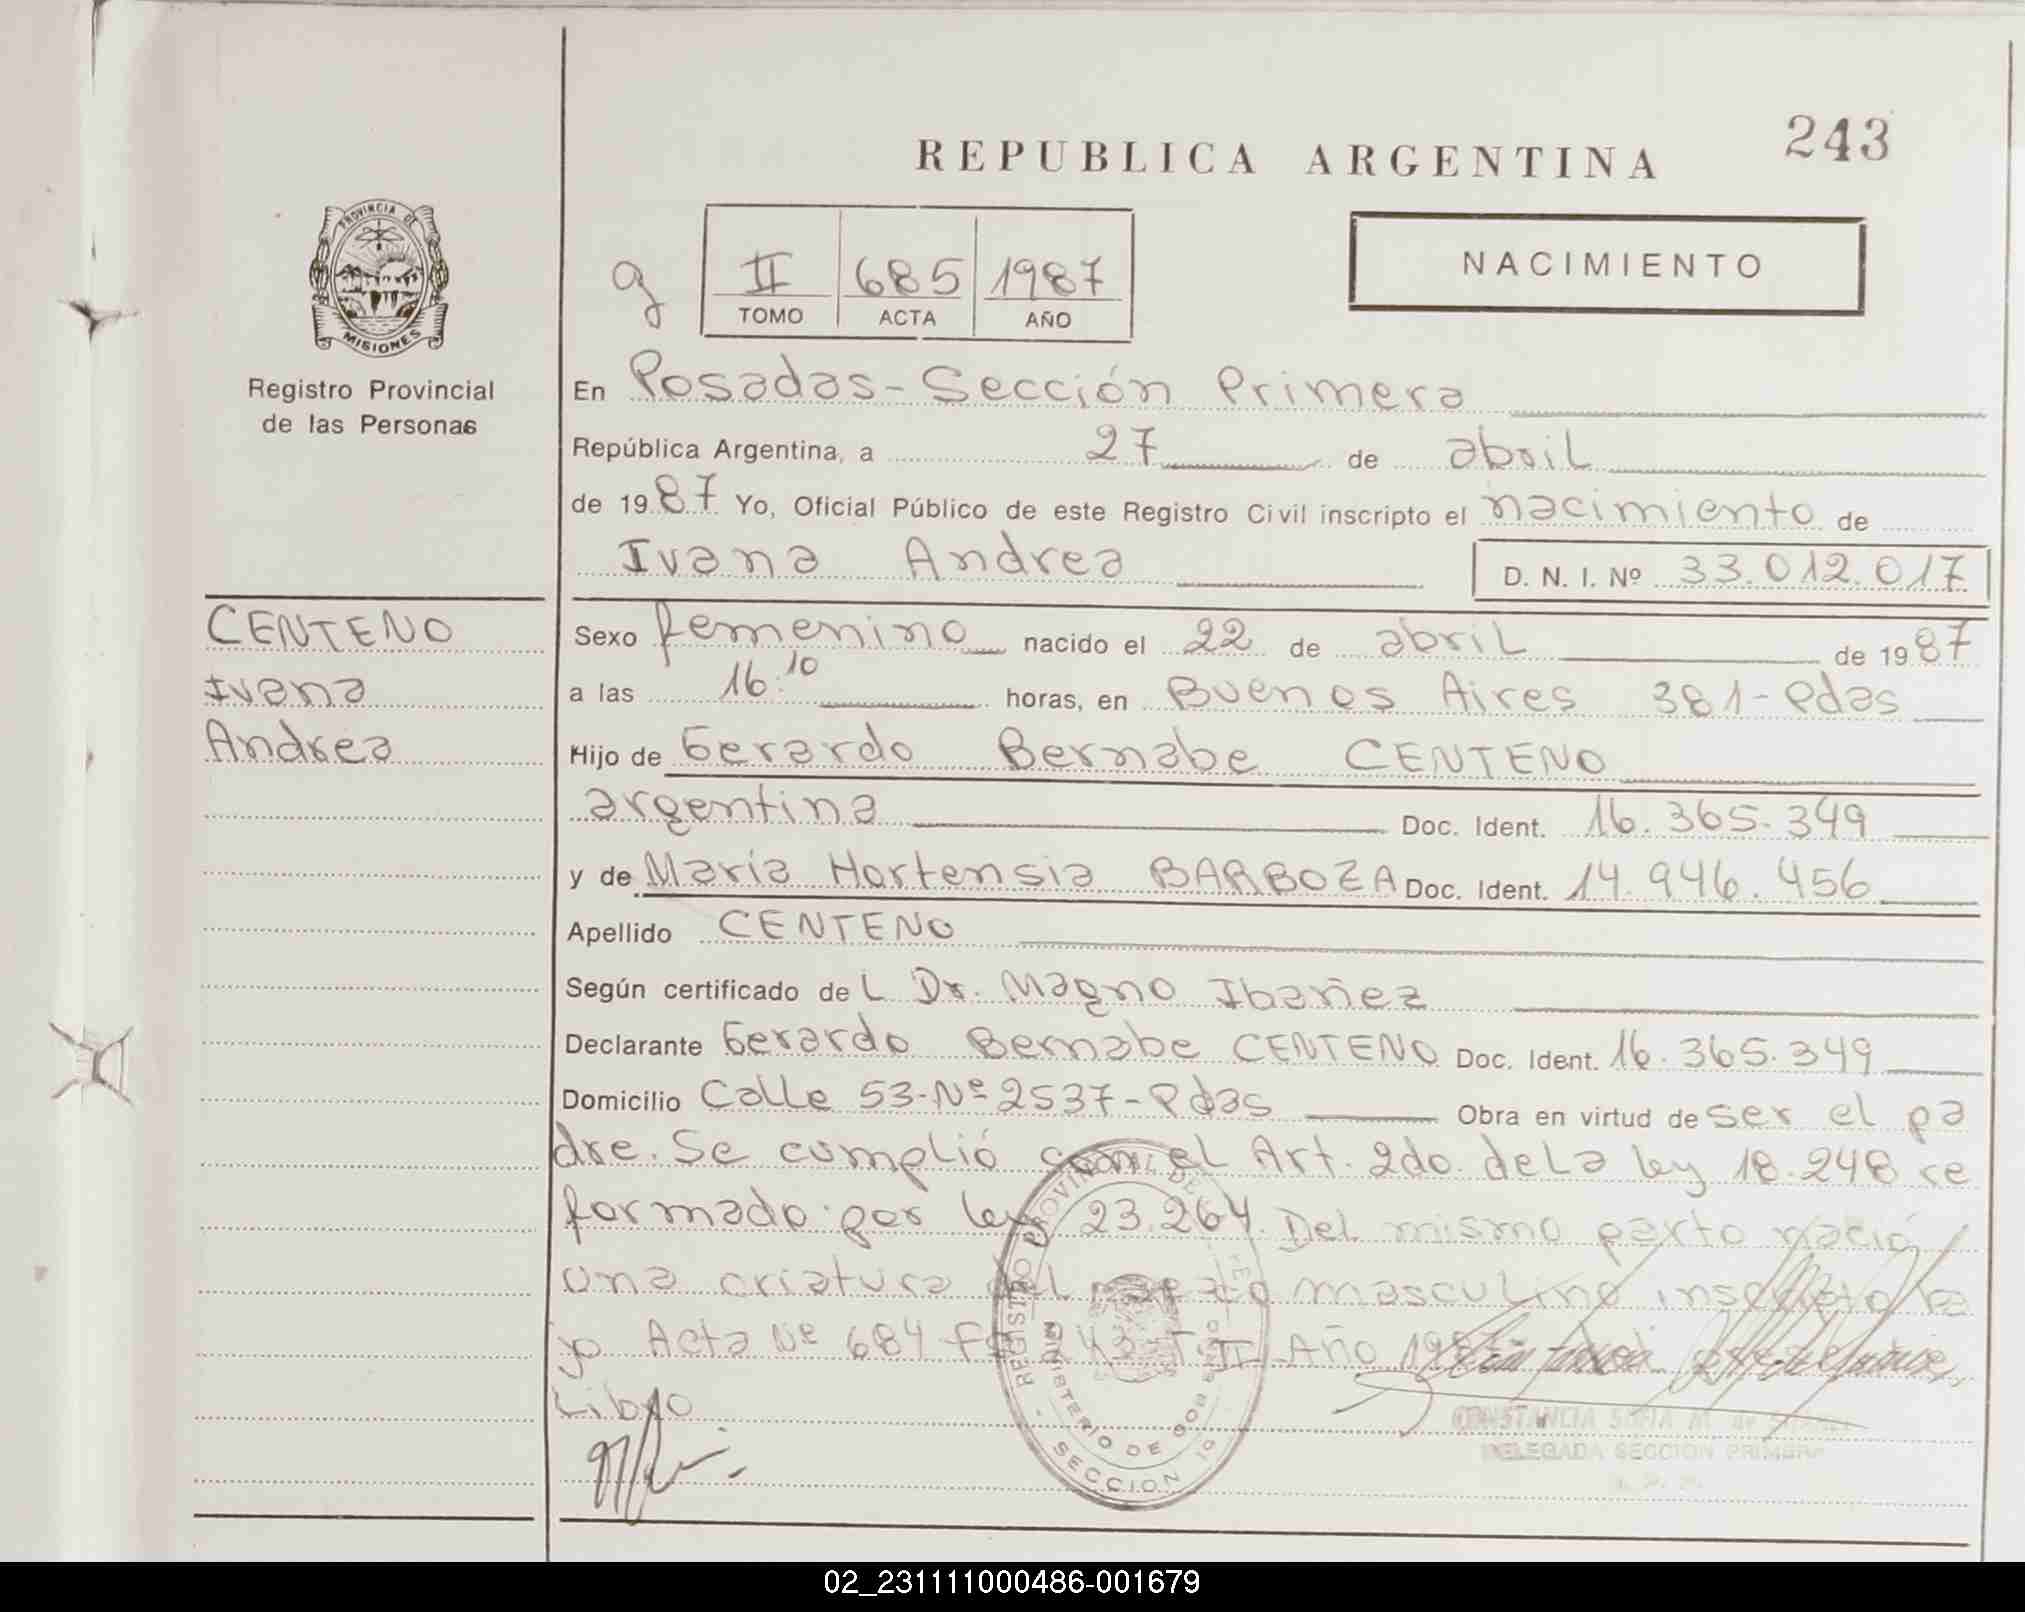 243
REPUBLICA ARGENTINA
NACIMIENTO
PROVINCIA DE
MISIONES
Registro Provincial
de las Personas
g
II 685 1987
TOMO ACTA AÑO
En Posadas-Sección Primera
República Argentina, a 27 de abril
de 1987 Yo, Oficial Público de este Registro Civil inscripto el nacimiento de
Ivana Andrea D. N. I. Nº 33.012.017
CENTENO
Ivana
Andrea
Sexo femenino nacido el 22 de abril de 1987
a las 16:10 horas, en Buenos Aires 381-Pdas
Hijo de Gerardo Bernabe CENTENO
argentina Doc. Ident. 16.365.349
y de Maria Hortensia BARBOZA Doc. Ident. 14.946.456
Apellido CENTENO
Según certificado del Dr. Magno Ibañez
Declarante Gerardo Bernabe CENTENO Doc. Ident. 16.365.349
Domicilio Calle 53-Nº 2537-Pdas Obra en virtud de ser el pa
dre. Se cumplió con el Art. 2do. de la ley 18.248 re
formado por ley 23.264. Del mismo parto nació
una criatura del sexo masculino inscripto ba
jo Acta Nº 684 Fº 243 T II Año 198
Libro
REGISTRO PROVINCIAL DE
MINISTERIO DE GOB
SECCION 1
CONSTANCIA SOFIA M. de
DELEGADA SECCION PRIMERA
02_231111000486-001679